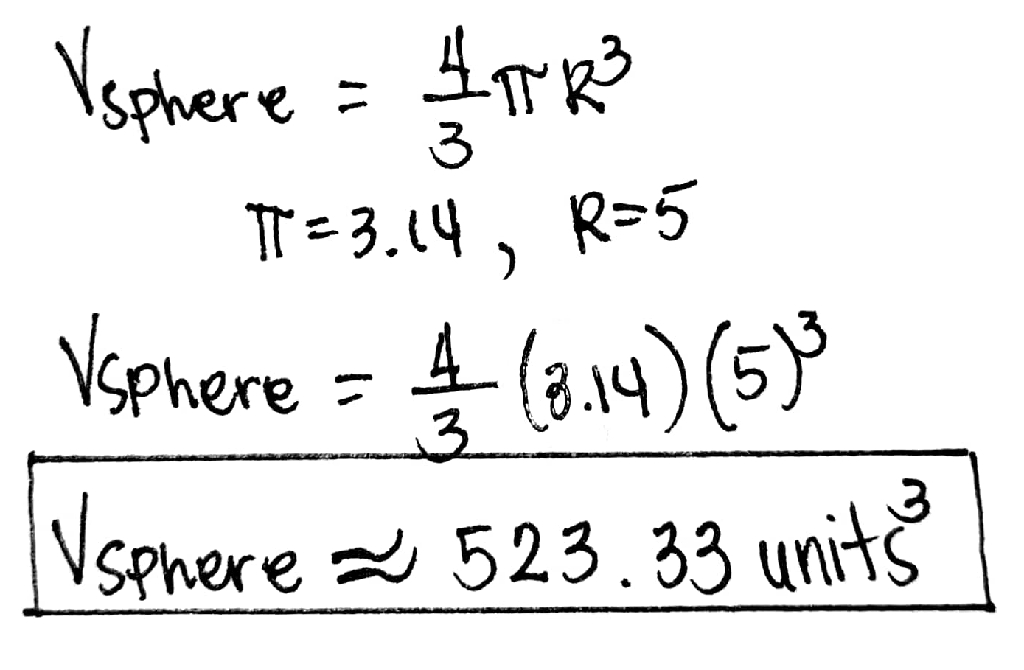 Vsphere = 4/3 π R³
π = 3.14, R = 5
Vsphere = 4/3 (3.14)(5)³
Vsphere ≈ 523.33 units³